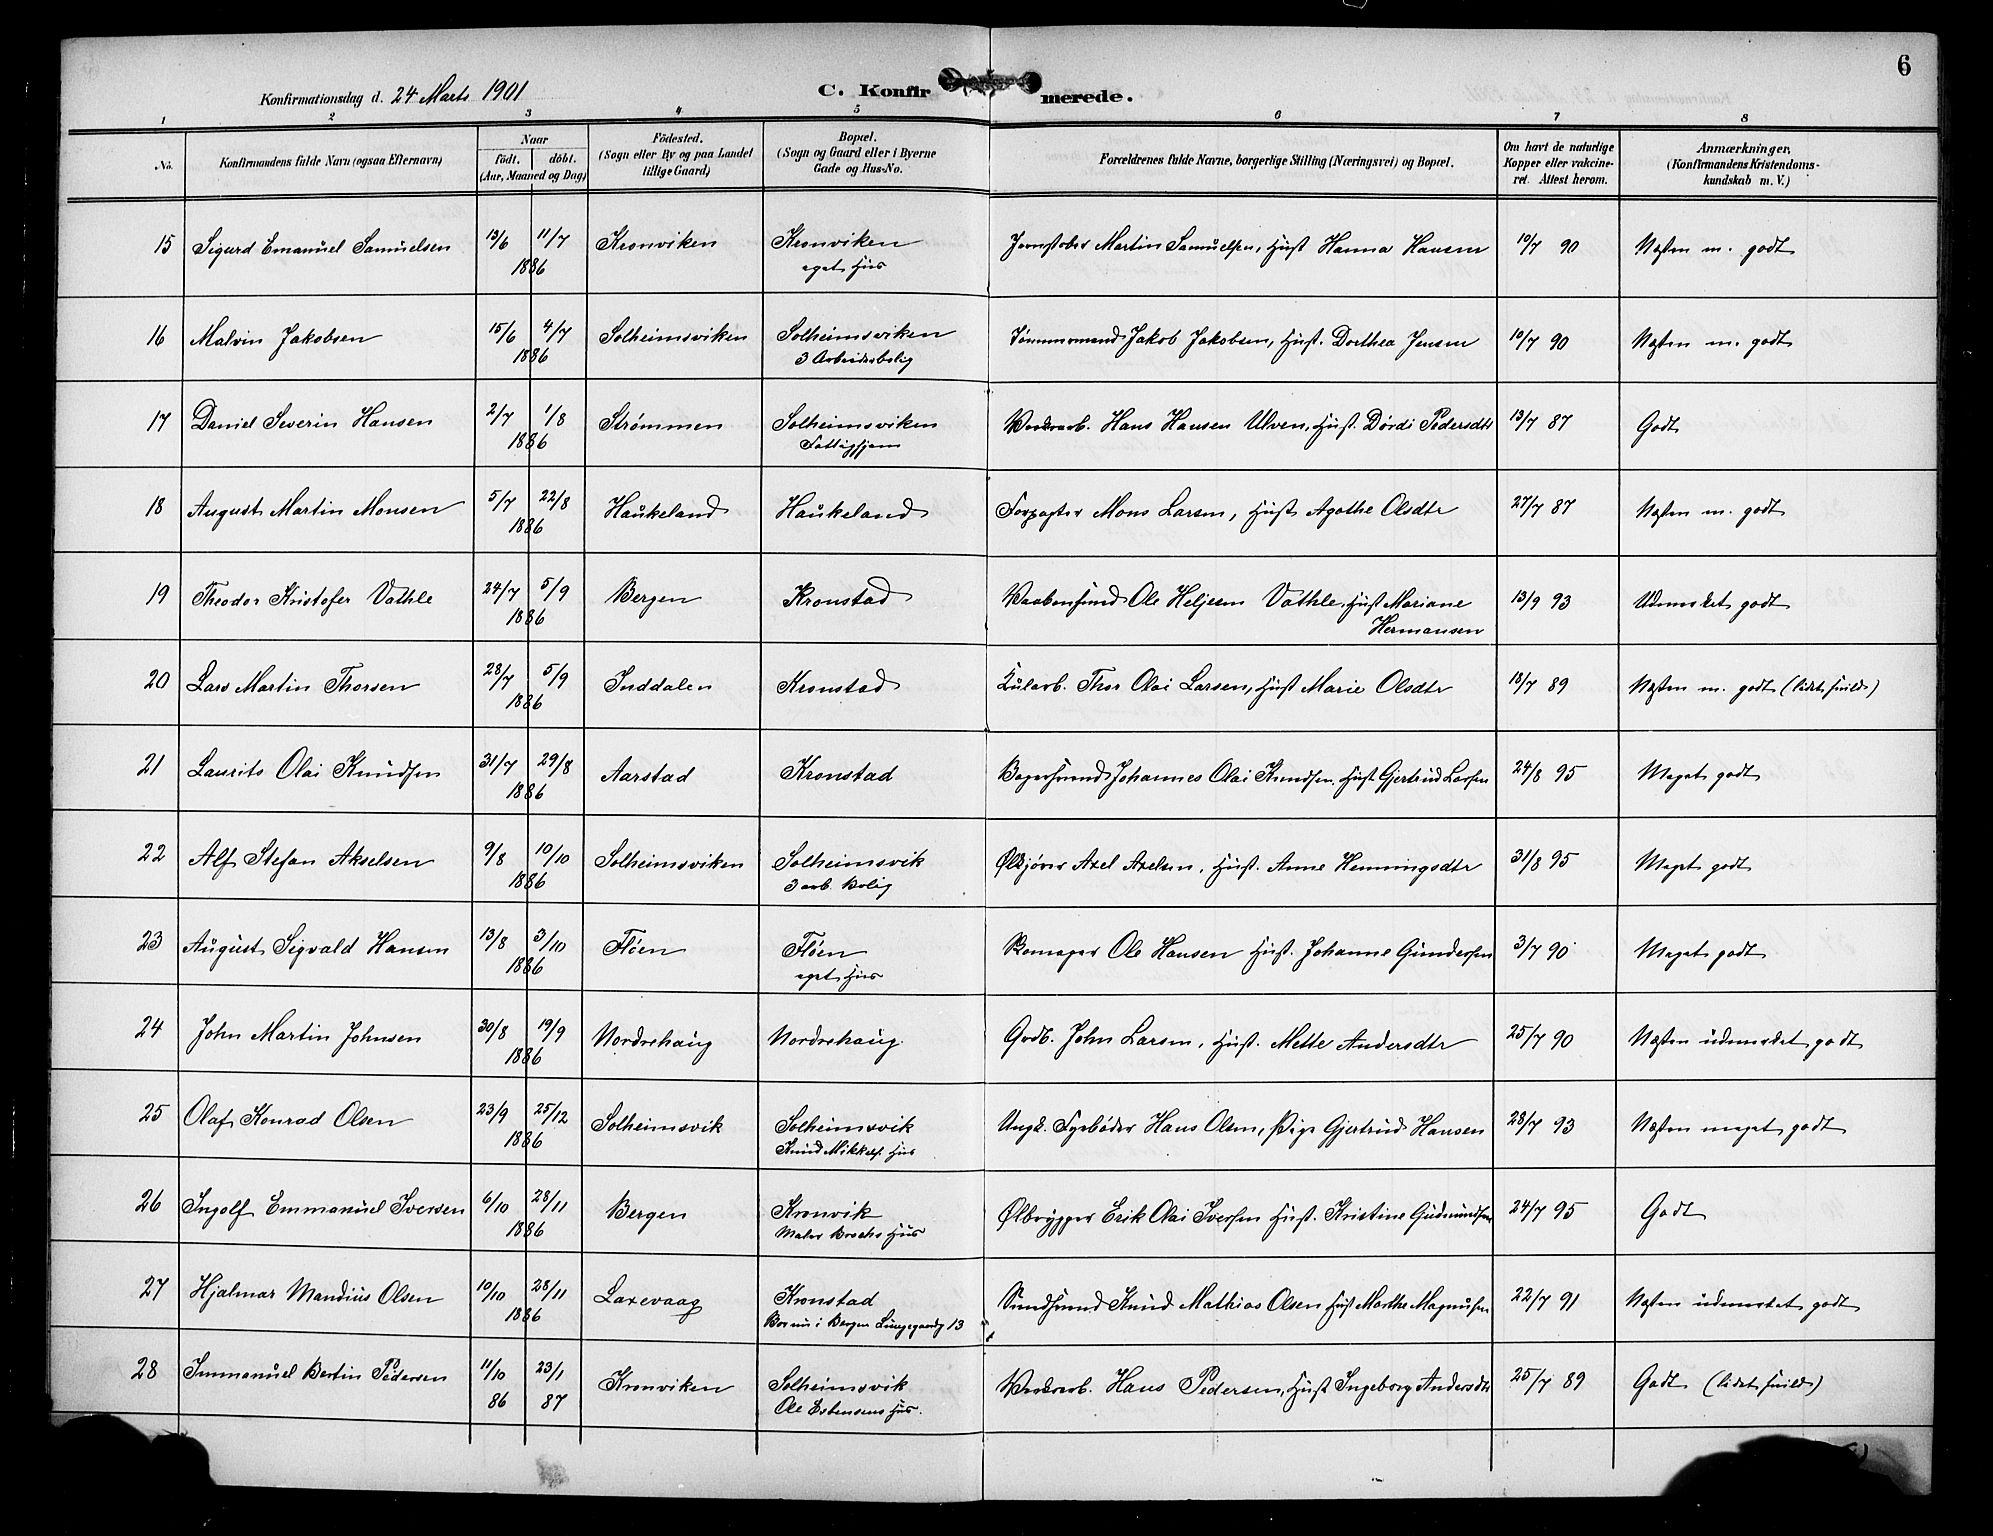 6
Konfirmationsdag d. 24 Marts 1901
C. Konfirmerede.
1 2 3 4 5 6 7 8
No. Konfirmandens fulde Navn (ogsaa Efternavn) Naar födt. döbt. (Aar, Maaned og Dag) Födested. (Sogn eller By og paa Landet tillige Gaard) Bopæl. (Sogn og Gaard eller i Byerne Gade og Hus-No. Forældrenes fulde Navne, borgerlige Stilling (Næringsvei) og Bopæl. Om havt de naturlige Kopper eller vakcineret. Attest herom. Anmærkninger, (Konfirmandens Kristendomskundskab m. V.)
15 Sigurd Emanuel Samuelsen 13/6 11/7 1886 Kronviken Kronviken eget Hus Jernstøber Martin Samuelsen, Hust Hanna Hansen 10/7 90 Næsten m. godt
16 Malvin Jakobsen 15/6 4/7 1886 Solheimsviken Solheimsviken 3 Arbeiderbolig Tømmermand Jakob Jakobsen, Hust. Dorthea Jensen 10/7 90 Næsten m. godt
17 Daniel Severin Hansen 2/7 1/8 1886 Strømmen Solheimsviken Fattighjem Værksarb. Hans Hansen Ulven, Hust. Dordi Pedersdtr 13/7 87 Godt
18 August Martin Monsen 5/7 22/8 1886 Haukeland Haukeland Forpagter Mons Larsen, Hust Agathe Olsdtr 27/7 87 Næsten m. godt
19 Theodor Kristofer Vathle 24/7 5/9 1886 Bergen Kronstad Ole Heljesen Vathle, Hust Mariane Hermansen 13/9 93 Udmærket godt
20 Lars Martin Thorsen 28/7 5/9 1886 Inddalen Kronstad Thor Olai Larsen, Hust Marie Olsdtr 18/7 89 Næsten m. godt (lidet flink)
21 Laurits Olai Knudsen 31/7 29/8 1886 Aarstad Kronstad Bagersvend Johannes Olai Knudsen, Hust Gjertrud Larsen 24/8 95 Meget godt
22 Alf Stefan Akselsen 9/8 10/10 1886 Solheimsviken Solheimsvik 3 arb. Bolig Axel Axelsen, Hust. Anne Henningsdtr 31/8 95 Meget godt
23 August Sigvald Hansen 13/8 3/10 1886 Fløen Fløen eget Hus Skomager Ole Hansen Hust. Johanne Gundersen 3/7 90 Meget godt
24 John Martin Johnsen 30/8 19/9 1886 Nordrehaug Nordrehaug. Gdb. John Larsen, Hust. Mette Andersdtr 25/7 90 Næsten udmærket godt
25 Olaf Konrad Olsen 23/9 25/12 1886 Solheimsvik Solheimsvik Knud Mikkels. Hus Ungk. Fyrbøder Hans Olsen, Pige Gjertrud Hansen 28/7 93 Næsten meget godt
26 Ingolf Emmanuel Iversen 6/10 28/11 1886 Bergen Kronvik Maler Brochs Hus Ølbrygger Erik Olai Iversen Hust. Kristine Gudmundsen 24/7 95 Godt
27 Hjalmar Mandius Olsen 10/10 28/11 1886 Laxevaag Kronstad Bor nu i Bergen Lungegaardg 13 Knud Mathias Olsen Hust Marthe Magnusen 22/7 91 Næsten udmærket godt
28 Immanuel Bertin Pedersen 11/10 86 23/1 87 Kronviken Solheimsvik Ole Estensens Hus. Værksarb. Hans Pedersen, Hust Ingeborg Andersdtr 25/7 89 Godt (lidet flink)